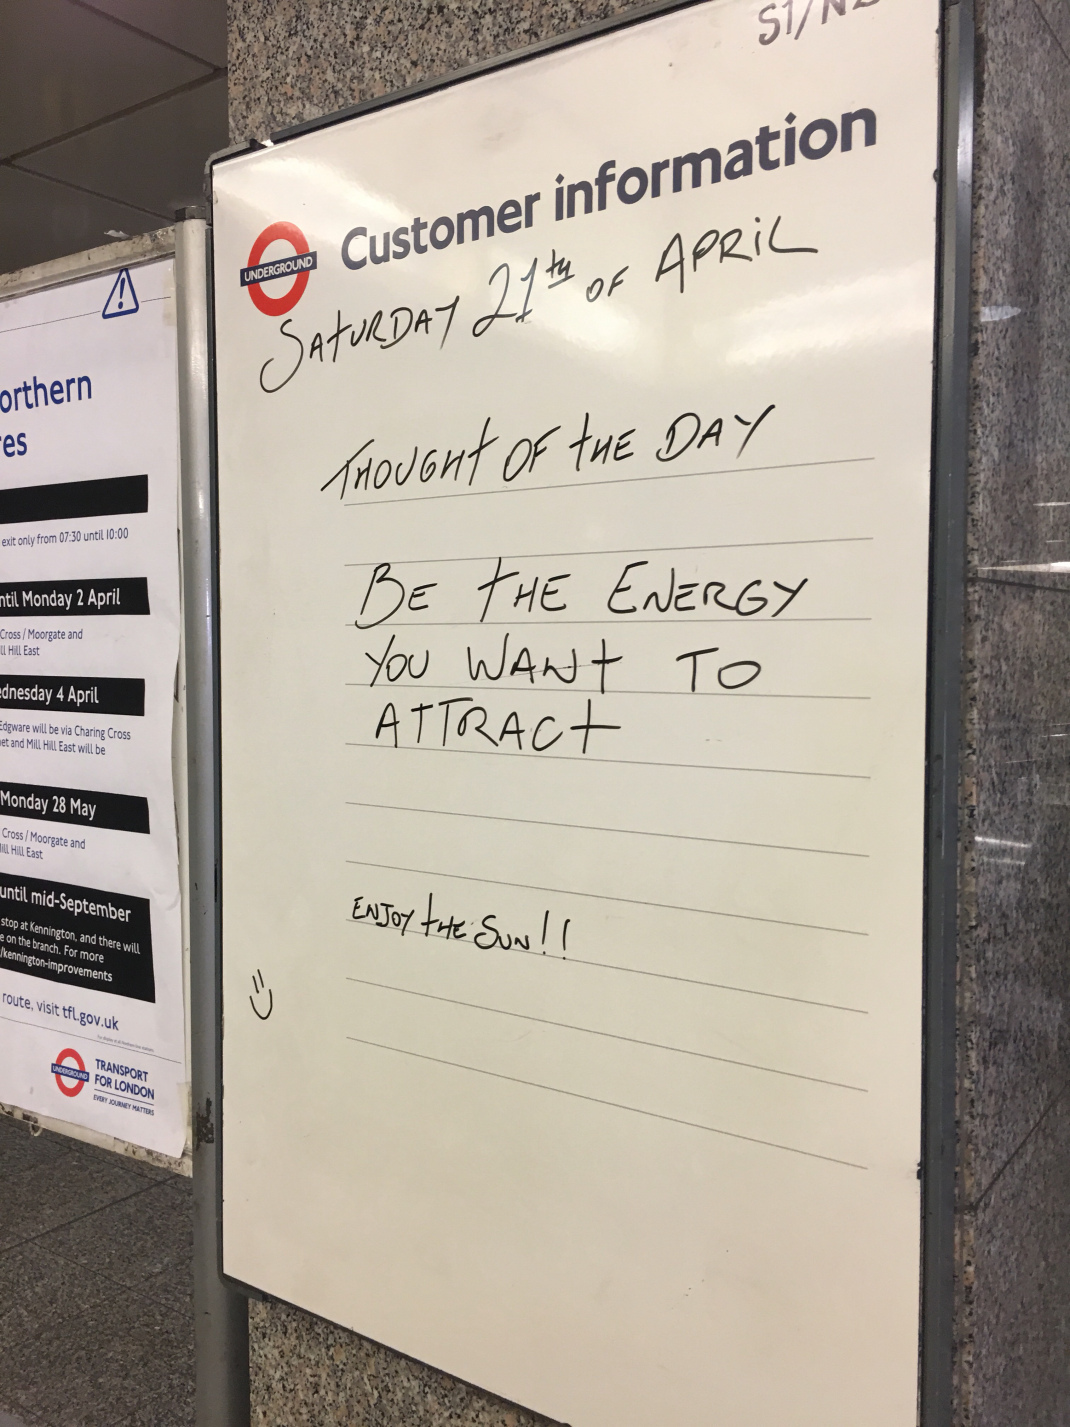 Customer information
UNDERGROUND
SATURDAY 21th OF APRIL
THOUGHT OF THE DAY
BE THE ENERGY
YOU WANT TO
ATTRACT
ENJOY THE SUN!!
orthern
res
exit only from 07:30 until 10:00
ntil Monday 2 April
Cross / Moorgate and
ll Hill East
ednesday 4 April
Edgware will be via Charing Cross
et and Mill Hill East will be
Monday 28 May
Cross / Moorgate and
Mill Hill East
until mid-September
stop at Kennington, and there will
e on the branch. For more
/kennington-improvements
route, visit tfl.gov.uk
UNDERGROUND
TRANSPORT
FOR LONDON
EVERY JOURNEY MATTERS